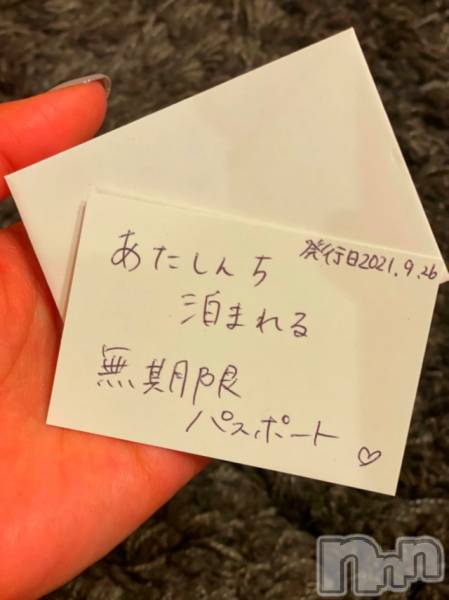 発行日2021.9.26
あたしんち
泊まれる
無期限
パスポート♡
nnn